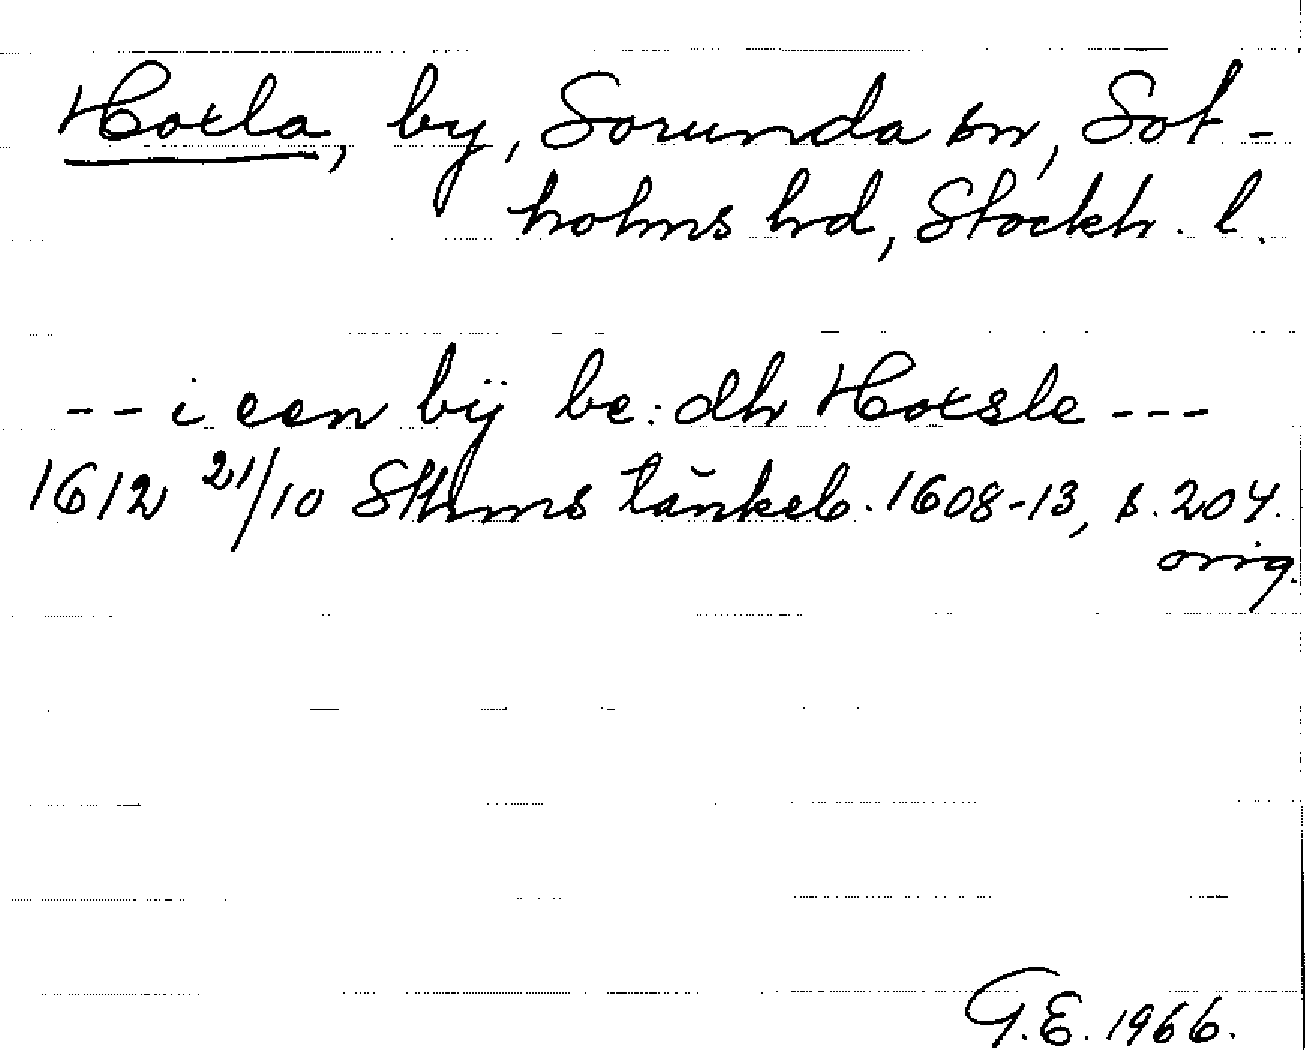 Hoxla, by, Sorunda sn, Sot-
holms hd, Stockh. l.
-- i een bÿ be: dh Hoxsle ---
1612 21/10 Sthms tänkeb. 1608-13, s. 204.
orig.
G.E. 1966.